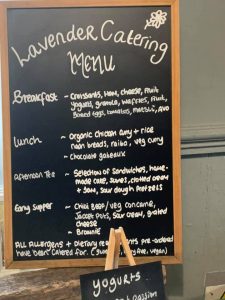 Lavender Catering
MENU
Breakfast ~ Croissants, Ham, cheese, Fruit
yogurts, granola, waffles, Fruit,
Boiled eggs, tomatoes, Avo
Lunch ~ Organic Chicken curry + rice
naan breads, raita, veg curry
~ Chocolate gateaux
Afternoon Tea ~ Selection of Sandwiches, home-
made cake, clotted cream
+ Jam, sour dough pretzels
Early Supper ~ Chilli Beef/veg concarne,
Jacket Pots, sour cream, grated
cheese
~ Brownie
ALL Allergens + Dietary pre-ordered
have been catered for. Free, vegan)
yogurts
passion